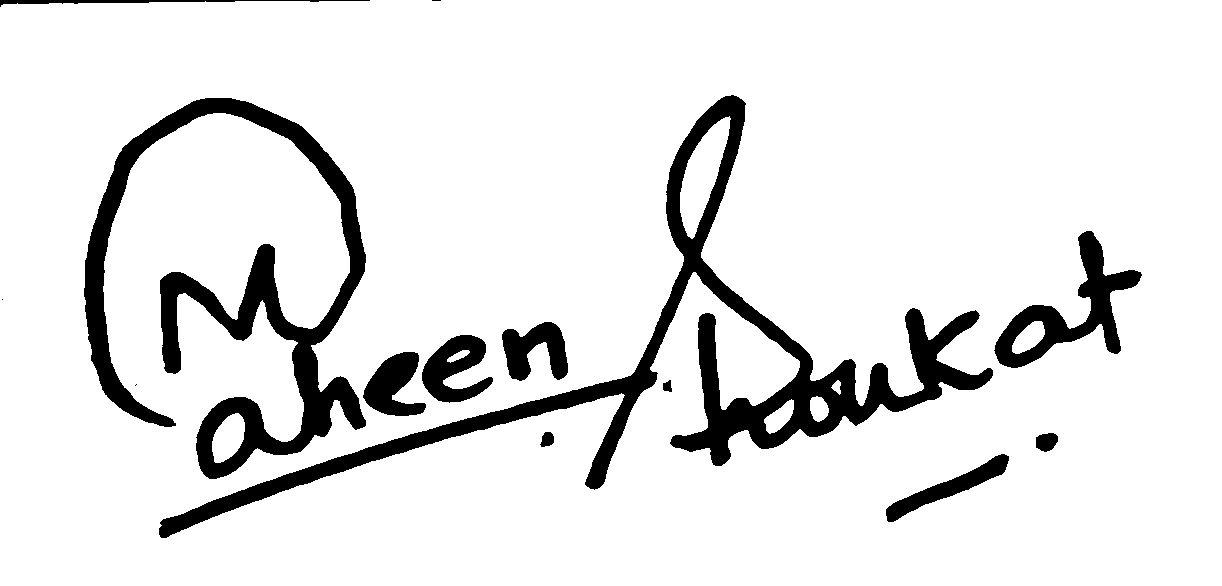 Maheen Shoukat